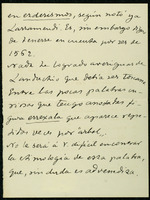 en erderismos, según nota ya
Larramendi. Es, sin embargo digno
de tenerse en cuenta por ser de
1562.
Nada he logrado averiguar de
Landuchio que debía ser
Entre las pocas palabras cu-
riosas que tengo anotadas fi-
gura errexala que aparece repe-
tidas veces por "árbol".
No le será a V. difícil encontrar
la etimología de esa palabra,
que, sin duda es advenediza.